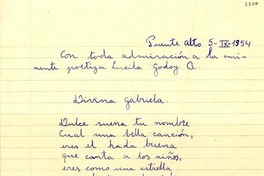 Puente Alto 5-IX-1954
Con toda admiración a la emi-
nente poetiza Lucila Godoy A.
Divina Gabriela.
Dulce suena tu nombre
Cual una bella canción,
eres el hada buena
que canta a los niños,
eres como una estrella